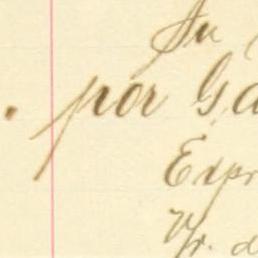 Su
. por Ga
Expr
Vr. d